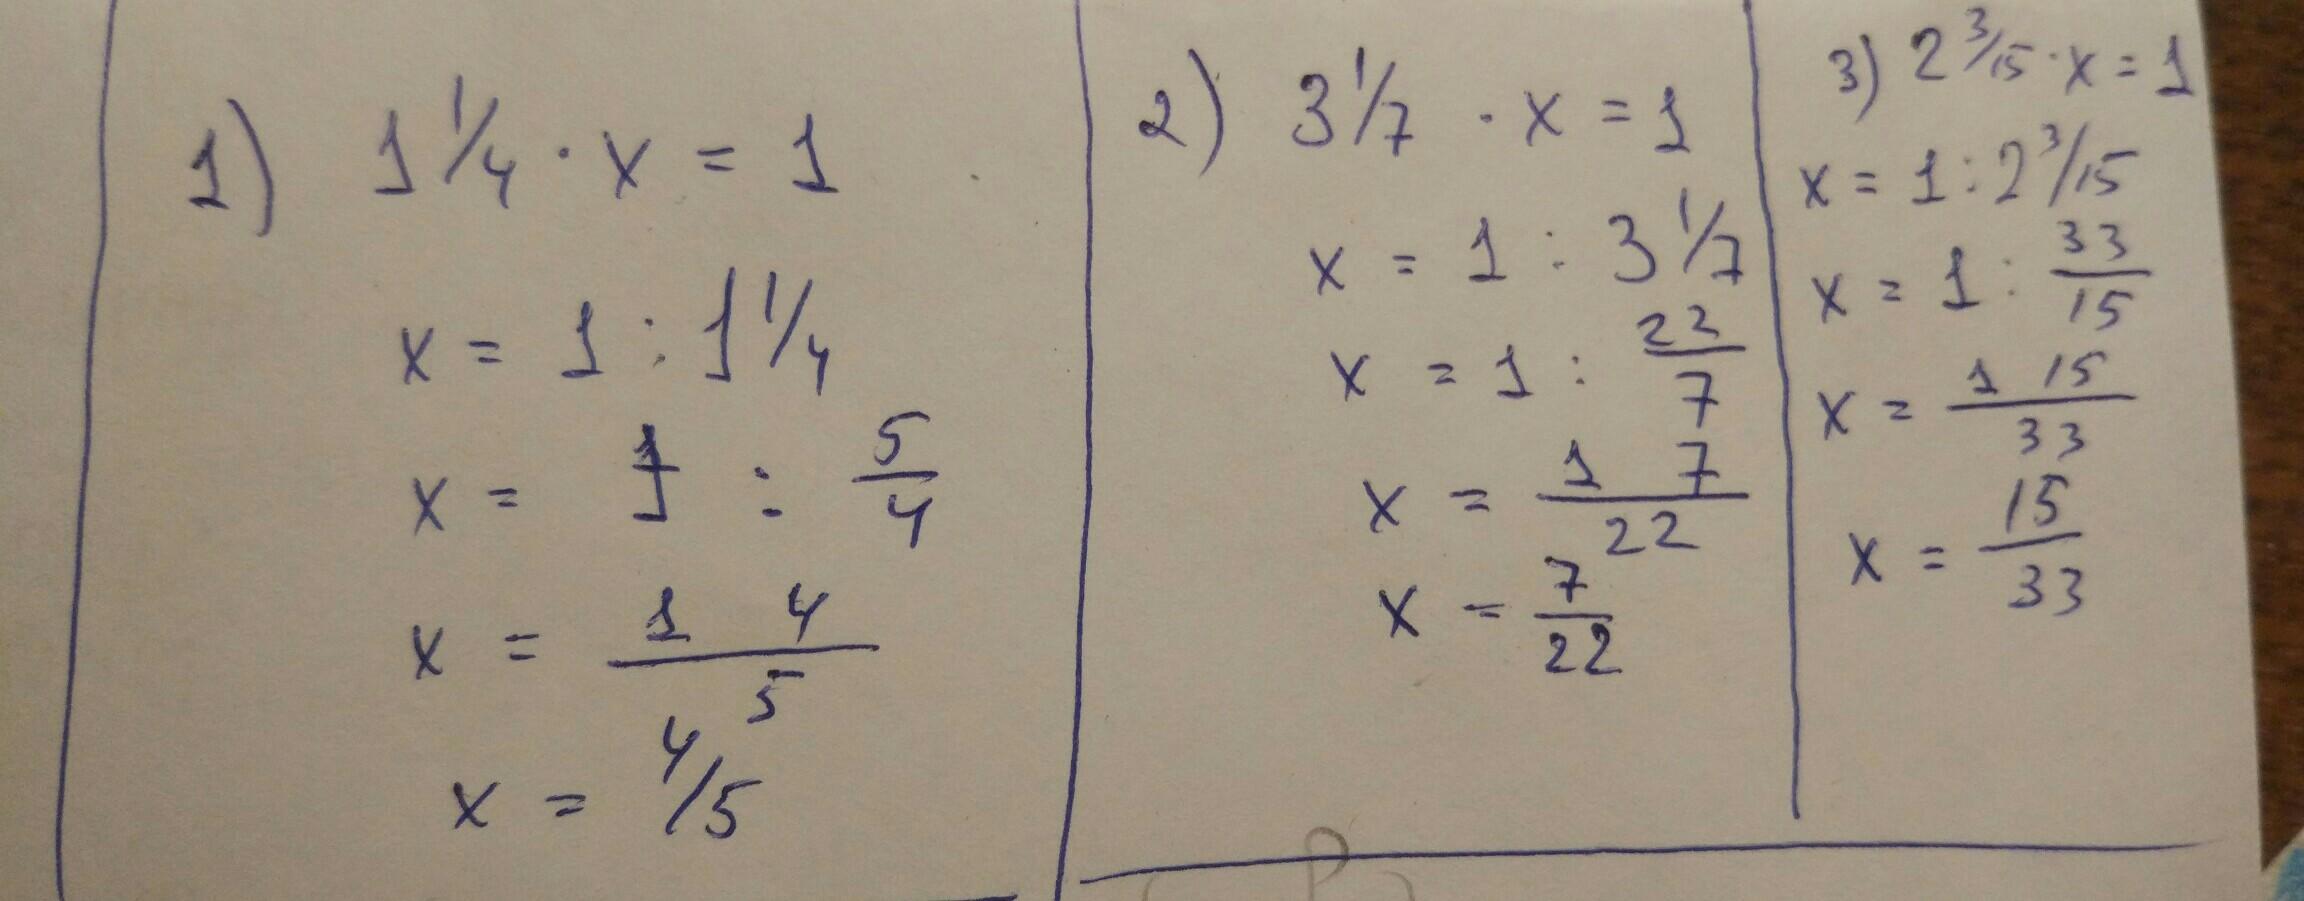 1) 1 1/4 · x = 1
x = 1 : 1 1/4
x = 1 : 5/4
x = 1 4/5
x = 4/5
2) 3 1/7 · x = 1
x = 1 : 3 1/7
x = 1 : 22/7
x = 1 7/22
x = 7/22
3) 2 3/15 · x = 1
x = 1 : 2 3/15
x = 1 : 33/15
x = 1 15/33
x = 15/33